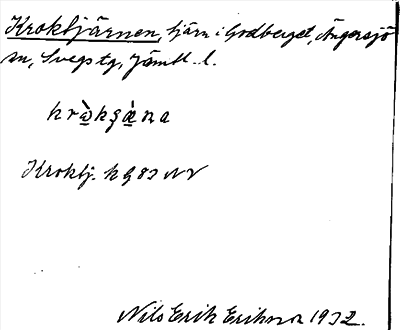 Kroktjärnen, tjärn i Godberget, Ängersjö
sn, Svegs tg, Jämtl. l.
Kroktj. k G 83 NV
Nils Erik Erikson 1932.